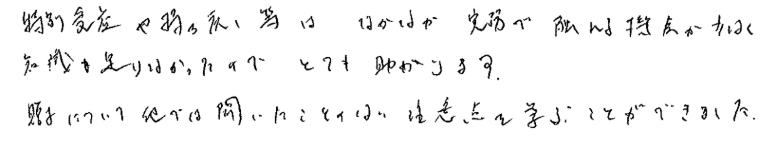 特別受益や持ち戻し等は なかなか実務で触れる機会が少なく
知識も足りなかったので とても助かります。
贈与について他では聞いたことのない注意点を学ぶことができました。